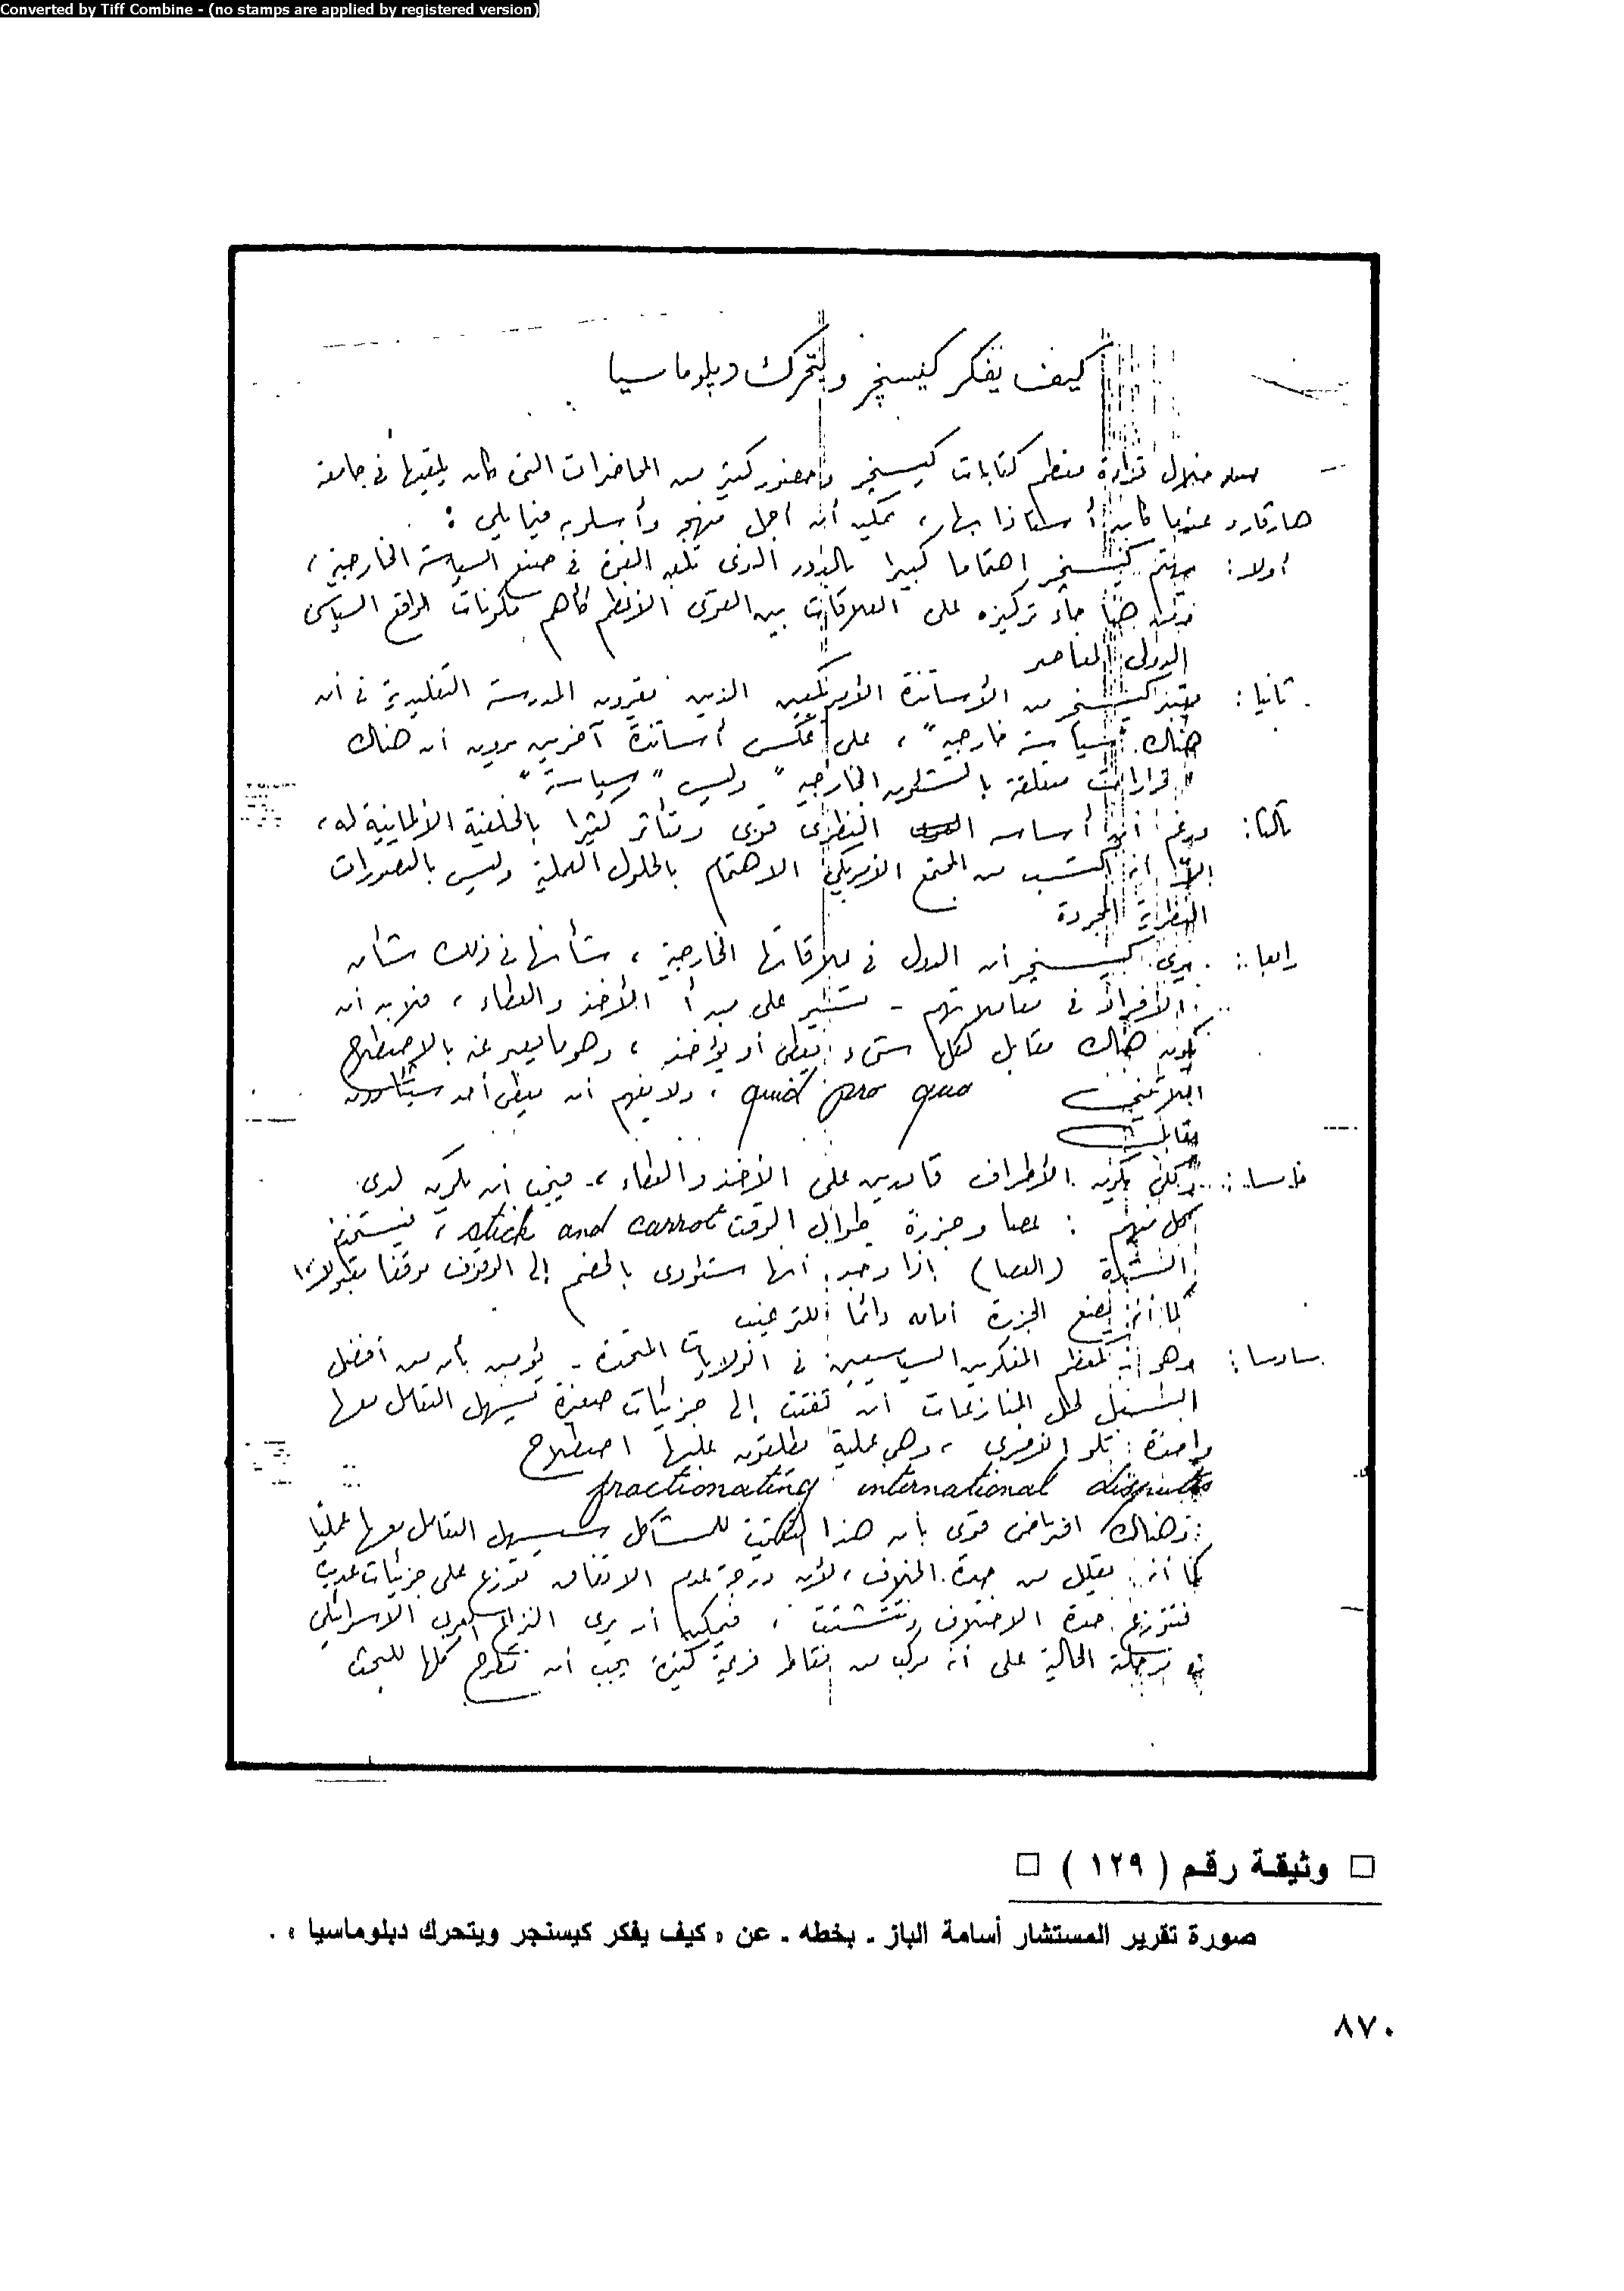 Converted by Tiff Combine - (no stamps are applied by registered version)
كيف يفكر كيسنجر ويتحرك دبلوماسيا
من خلال قراءة معظم كتابات كيسنجر وحضور كثير من المحاضرات التى كان يلقيها فى جامعة
هارفارد عندما كان أستاذا بها، يمكن أن أجمل منهجه وأسلوبه فيما يلى :
أولا : يهتم كيسنجر اهتماما كبيرا بالدور الذى تلعبه القوة فى صنع السياسة الخارجية،
ومن هنا جاء تركيزه على العلاقات بين القوى الأعظم كأهم مكونات الواقع السياسى
الدولى المعاصر
ثانيا : يعتبر كيسنجر من الأساتذة الأمريكيين الذين يقرون المدرسة التقليدية فى أن
هناك "سياسة خارجية" ، على عكس أساتذة آخرين يرون أن هناك
"قرارات متعلقة بالشئون الخارجية" وليس "سياسة"
ثالثا : ورغم أن أساسه النظرى قوى ومتأثر كثيرا بالخلفية الألمانية له،
إلا أنه اكتسب من المجتمع الأمريكى الاهتمام بالحلول العملية وليس بالتصورات
النظرية المجردة
رابعا : يرى كيسنجر أن الدول فى علاقاتها الخارجية ، شأنها فى ذلك شأن
الأفراد فى معاملاتهم - تسير على مبدأ الأخذ والعطاء ، فلابد أن
يكون هناك مقابل لكل شىء يعطى أو يؤخذ ، وهو ما يعبر عنه بالاصطلاح
اللاتينى quid pro quo ، ولا يفهم أن يعطى أحد شيئا دون
مقابل
خامسا : ولكى يكون الأطراف قادرين على الأخذ والعطاء ، فيجب أن يكون لدى
كل منهم : عصا وجزرة طوال الوقت stick and carrot ، فيستخدم
الشدة (العصا) إذا وجد أنها ستؤدى بالخصم إلى الوقوف موقفا مقبولا،
كما أنه يضع الجزرة أمامه دائما للترغيب
سادسا : وهو كمعظم المفكرين السياسيين فى الولايات المتحدة - يؤمن بأن من أفضل
السبل لحل المنازعات أن تفتت إلى جزئيات صغيرة يسهل التعامل معها
واحدة تلو الأخرى ، وهى عملية يطلقون عليها اصطلاح
fractionating international disputes
وهناك افتراض قوى بأن هذا التفتيت للمشاكل سيسهل التعامل معها عمليا
كما أنه يقلل من حدة الخلاف ، لأن درجة عدم الاتفاق تتوزع على جزئيات عديدة
فتتوزع حدة الاختلاف وتتشتت ، فيمكن أن يرى النزاع العربى الاسرائيلى
فى مرحلته الحالية على أنه مركب من نقاط فرعية كثيرة يجب أن تطرح كلها للبحث
□ وثيقة رقم ( ١٢٩ ) □
صورة تقرير المستشار أسامة الباز ـ بخطه ـ عن « كيف يفكر كيسنجر ويتحرك دبلوماسيا » .
٨٧٠